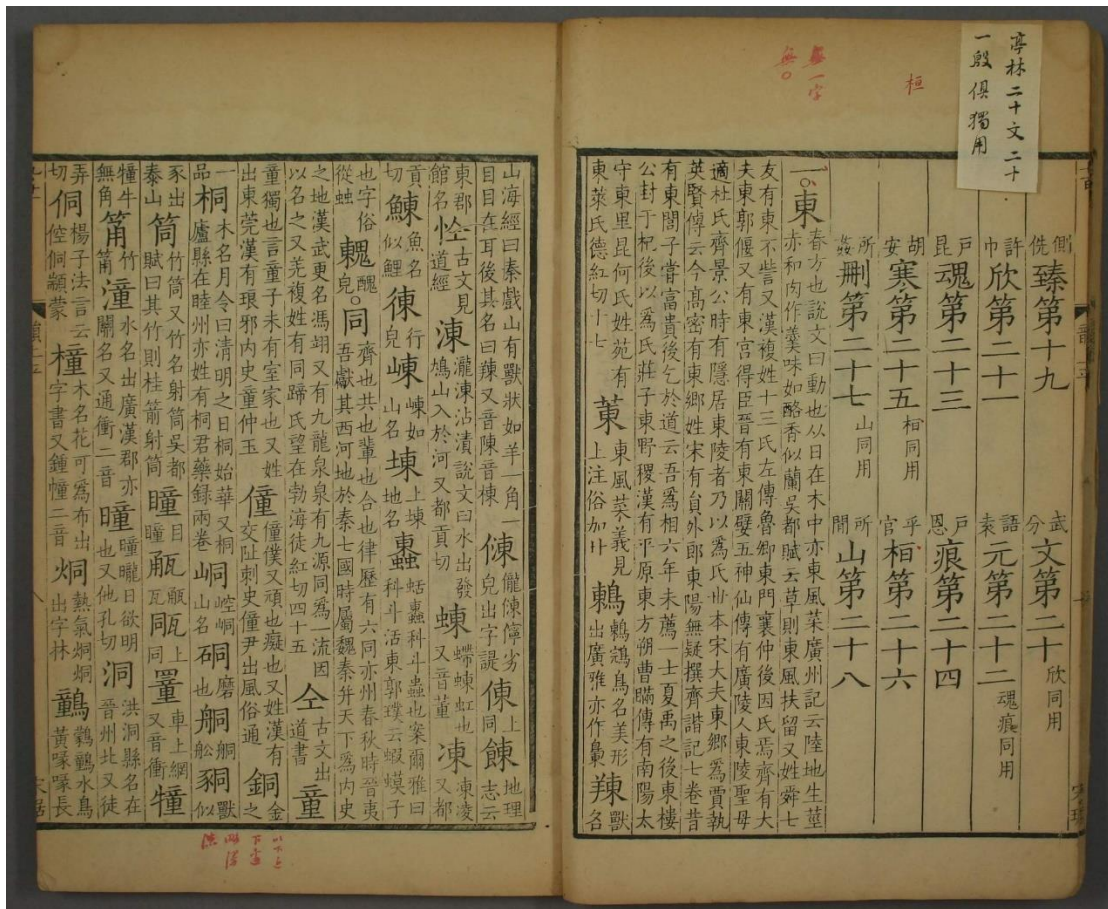 亭林二十文二十
一殷俱獨用
桓
無一字
無○
側詵臻第十九 武分文第二十欣同用
許巾欣第二十一 語袁元第二十二魂痕同用
戶昆魂第二十三 戶恩痕第二十四
胡安寒第二十五桓同用 乎官桓第二十六
所姦刪第二十七山同用 所閒山第二十八
一東春方也說文曰動也从日在木中亦東風菜廣州記云陸地生莖
赤和肉作羹味如酪香似蘭吳都賦云草則東風扶留又姓舜七
友有東不訾又漢複姓十三氏左傳魯卿東門襄仲後因氏焉齊有大
夫東郭偃又有東宮得臣晉有東關嬖五神仙傳有廣陵人東陵聖母
適杜氏齊景公時有隱居東陵者乃以爲氏丗本宋大夫東鄉爲賈執
英賢傳云今高密有東鄉姓宋有貟外郎東陽無疑撰齊諧記七卷昔
有東閭子嘗富貴後乞於道云吾爲相六年未薦一士夏禹之後東樓
公封于杞後以爲氏莊子東野稷漢有平原東方朔曹瞞傳有南陽太
守東里昆何氏姓苑有東萊氏德紅切十七 菄東風菜義見上注俗加艹 鶇鶇鵍鳥名美形出廣雅亦作𪂝 䍶獸名
山海經曰秦戲山有獸狀如羊一角一目目在耳後其名曰䍶又音陳音棟 㑈儱㑈儜劣皃出字諟 倲上同 餗地理志云
東郡館名 𢘐古文見道經 涷瀧涷沾漬說文曰水出發鳩山入於河又都貢切 蝀螮蝀虹也又音董 凍凍凌又都
貢切 鯟魚名似鯉 𢔅行皃 崠崠如山名 埬上埬地名 𧓕蛞𧓕科斗蟲也案爾雅曰科斗活東郭璞云蝦蟆子
也字俗從虫 䰤醜皃○同齊也共也輩也合也律歷有六同亦州春秋時晉夷吾獻其西河地於秦七國時屬魏秦并天下爲内史
之地漢武更名馮翊又有九龍泉泉有九源同爲一流因以名之又羌複姓有同蹄氏望在勃海徒紅切四十五 仝古文出道書 童
童獨也言童子未有室家也又姓出東莞漢有琅邪内史童仲玉 僮僮僕又頑也癡也又姓漢有交阯刺史僮尹出風俗通 銅金之
一品 桐木名月令曰清明之日桐始華又桐廬縣在睦州亦姓有桐君藥録兩卷 峒崆峒山名 硐磨也 䑸䑸舩 㣠獸似
豕出泰山 筒竹筒又竹名射筒吳都賦曰其竹則桂箭射筒 瞳目瞳 㼧㼧瓦 𤭁上同 罿車上網又音衝 犝
犝牛無角 筩竹筩 潼水名出廣漢郡亦關名又通衝二音 曈曈曨日欲明也又他孔切 洞洪洞縣名在晉州北又徒
弄切 侗楊子法言云倥侗顓蒙 橦木名花可爲布出字書又鍾幢二音 烔熱氣烔烔出字林 𪆻鸛𪆻水鳥黃喙喙長